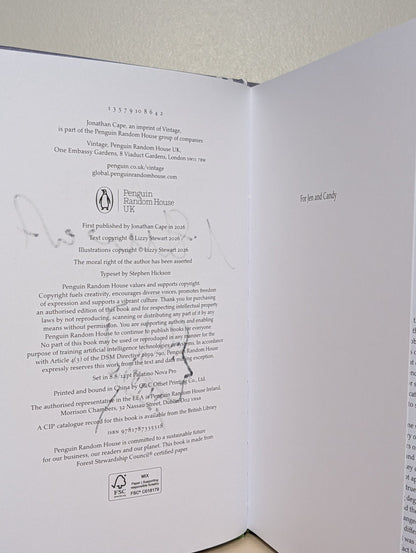 1 3 5 7 9 10 8 6 4 2
Jonathan Cape, an imprint of Vintage,
is part of the Penguin Random House group of companies
Vintage, Penguin Random House UK,
One Embassy Gardens, 8 Viaduct Gardens, London SW11 7BW
penguin.co.uk/vintage
global.penguinrandomhouse.com
Penguin
Random House
UK
First published by Jonathan Cape in 2026
Text copyright © Lizzy Stewart 2026
Illustrations copyright © Lizzy Stewart 2026
The moral right of the author has been asserted
Typeset by Stephen Hickson
Penguin Random House values and supports copyright.
Copyright fuels creativity, encourages diverse voices, promotes freedom
of expression and supports a vibrant culture. Thank you for purchasing
an authorised edition of this book and for respecting intellectual property
laws by not reproducing, scanning or distributing any part of it by any
means without permission. You are supporting authors and enabling
Penguin Random House to continue to publish books for everyone.
No part of this book may be used or reproduced in any manner for the
purpose of training artificial intelligence technologies or systems. In accordance
with Article 4(3) of the DSM Directive 2019/790, Penguin Random House
expressly reserves this work from the text and data mining exception.
Set in 8.8/14pt Palatino Nova Pro
Printed and bound in China by C&C Offset Printing Co., Ltd.
The authorised representative in the EEA is Penguin Random House Ireland,
Morrison Chambers, 32 Nassau Street, Dublin D02 YH68
A CIP catalogue record for this book is available from the British Library
ISBN 9781787335318
Penguin Random House is committed to a sustainable future
for our business, our readers and our planet. This book is made from
Forest Stewardship Council® certified paper.
FSC
MIX
Paper | Supporting
responsible forestry
FSC® C018179
For Jen and Candy